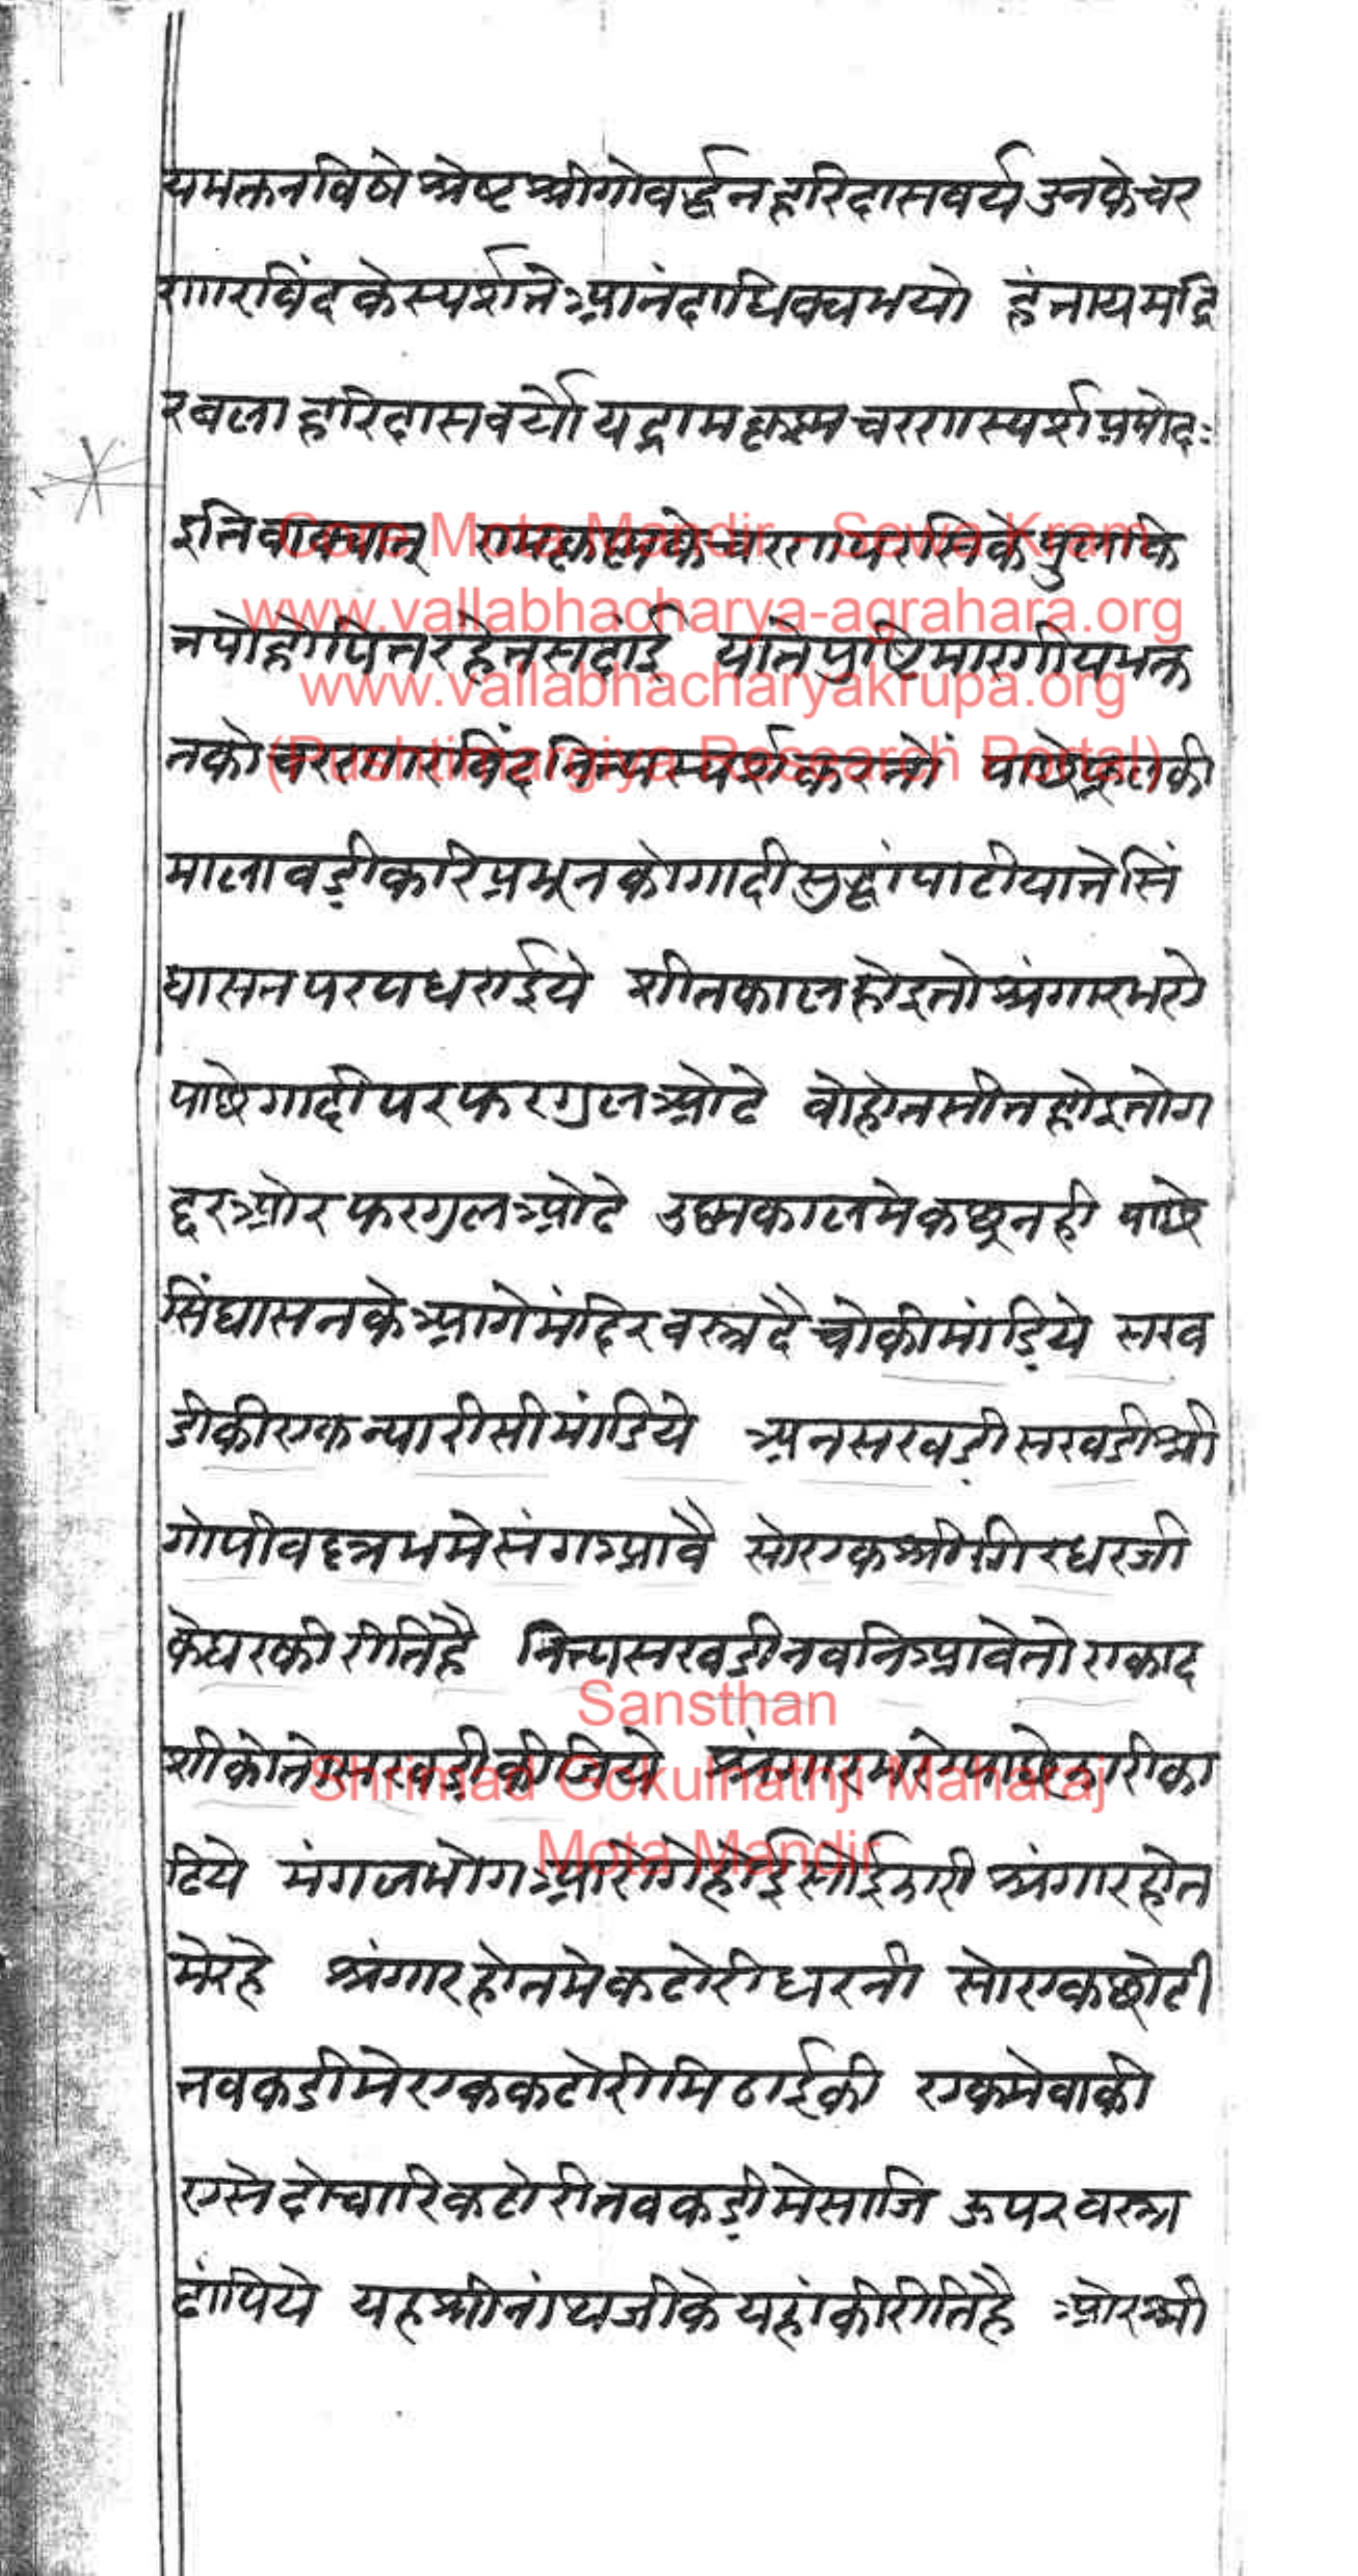 यभक्तनविषे श्रेष्ट श्रीगोवर्द्धन हरिदासवर्य उनके चर
णारविंदके स्पर्शते आनंदाधिक्य भयो हंतायमद्रि
रबला हरिदासवर्यो यद्रामकृष्ण चरणस्पर्श प्रमोदः
इति वाक्यात् रामकृष्णके चरण पुलकि
त पोहोपित रहेत सदांई याते पुष्टिमारगीय भक्त
नको चरणारविंद नित्य स्पर्श करनों पाछे फूलकी
माला बड़ी करि प्रभूनको गादी सुद्धां पाटीयाते सिं
घासन पर पधराईये शीतकाल होइ तो श्रृंगार भरो
पाछे गादी पर फरगुल ओढे बोहोत सीत होइ तो ग
द्दर ओर फरगुल ओढे उष्मकालमे कछू नही पाछे
सिंघासनके आगे मंदिर वस्त्र दै चोकी मांड़िये सख
डीकी एक न्यारीसी मांडिये अनसखड़ी सखडी श्री
गोपीवल्लभमे संग आवै सो एक श्री गिरधरजी
के घरकी रीति है नित्य सखडी नवनि आवे तो एकाद
शीको तो सखड़ी कीजिये श्रृंगार भरो पाछे झारी का
ढिये मंगल भोग आरोगे होई सोई झारी श्रृंगार होत
मे रहे श्रृंगार होतमे कटोरी धरनी सो एक छोटी
तबकडीमे एक कटोरी मिठाईकी एक मेवाकी
एसे दोचारि कटोरी तबकड़ीमे साजि ऊपर वस्त्र
ढांपिये यह श्रीनांथजीके यहांकी रीति है ओर श्री
Core Mota Mandir - Sewa Kram
www.vallabhacharya-agrahara.org
www.vallabhacharyakrupa.org
(Pushtimargiya Research Portal)
Sansthan
Shrimad Gokulnathji Maharaj
Mota Mandir